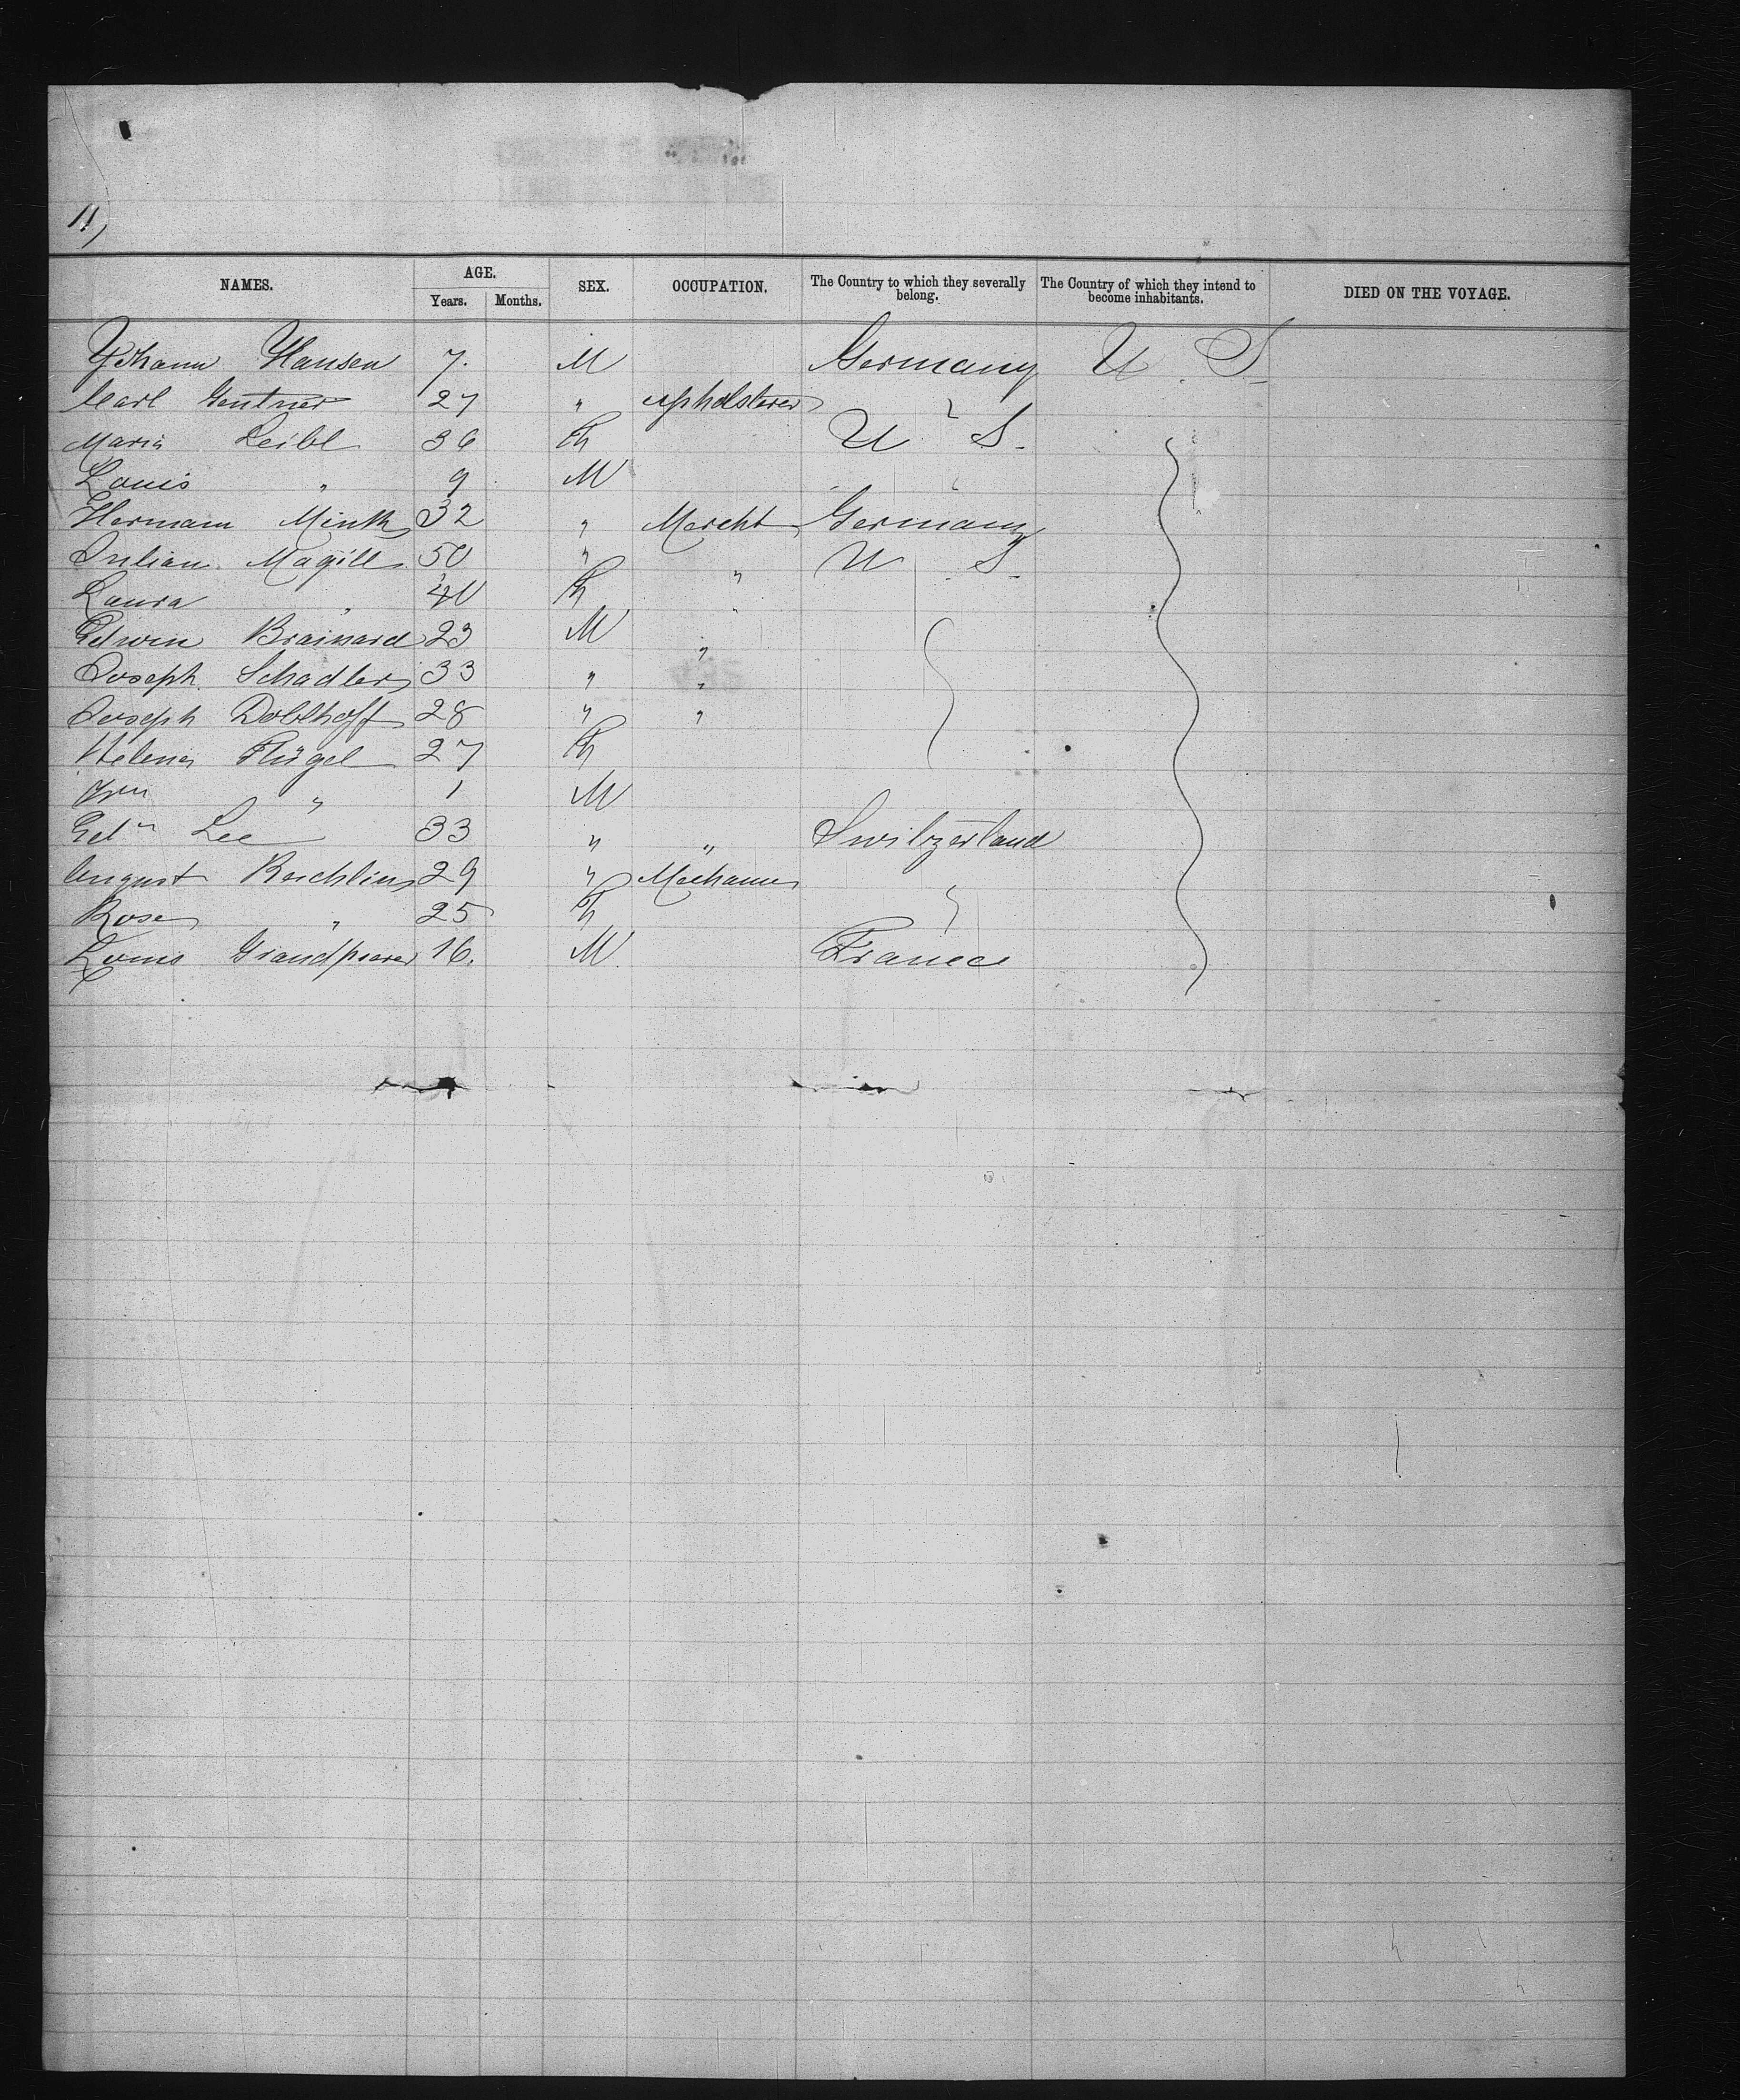 11)
NAMES. AGE. Years. Months. SEX. OCCUPATION. The Country to which they severally belong. The Country of which they intend to become inhabitants. DIED ON THE VOYAGE.
Johann Hansen 7. M Germany U. S.
Carl Gentner 27 " upholsterer "
Maria Leibl 36 F U S.
Louis " 9 M "
Hermann Minth 32 " Mercht Germany
Julian Magill 50 " " U S.
Laura " 40 F "
Edwin Brainard 23 M "
Joseph Schadler 33 " "
Joseph Doblhoff 28 " "
Helena Flügel 27 F
" 1 M
Edw Lee 33 " " Switzerland
August Reichlin 29 " Mechanic "
Rosa " 25 F
Louis Grandpierre 16. M. France